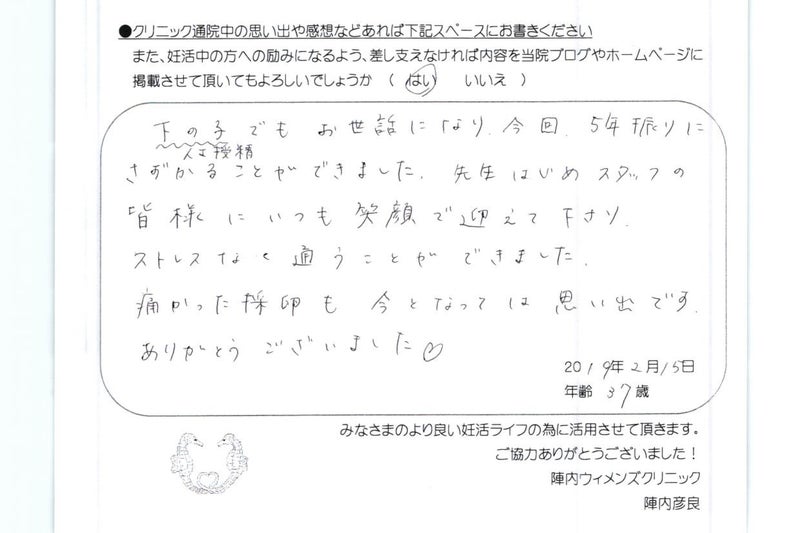 ●クリニック通院中の思い出や感想などあれば下記スペースにお書きください
また、妊活中の方への励みになるよう、差し支えなければ内容を当院ブログやホームページに
掲載させて頂いてもよろしいでしょうか （ はい いいえ ）
下の子でもお世話になり、今回、5年振りに
人工授精
さずかることができました。先生はじめスタッフの
皆様にいつも笑顔で迎えて下さり、
ストレスなく通うことができました。
痛かった採卵も今となっては思い出です。
ありがとうございました♡
2019年2月15日
年齢 37歳
みなさまのより良い妊活ライフの為に活用させて頂きます。
ご協力ありがとうございました！
陣内ウィメンズクリニック
陣内彦良